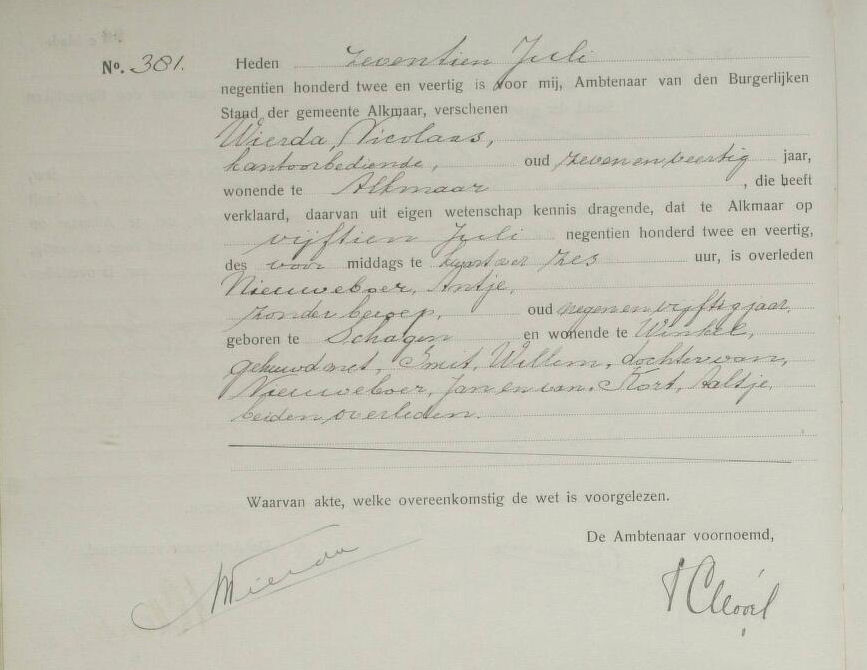 No. 381.
Heden zeventien Juli
negentien honderd twee en veertig is voor mij, Ambtenaar van den Burgerlijken
Stand der gemeente Alkmaar, verschenen
Wierda, Nicolaas,
kantoorbediende, oud zevenenveertig jaar,
wonende te Alkmaar, die heeft
verklaard, daarvan uit eigen wetenschap kennis dragende, dat te Alkmaar op
vijftien Juli negentien honderd twee en veertig,
des voor middags te kwart over zes uur, is overleden
Nieuweboer, Antje,
zonder beroep, oud negenenvijftig jaar,
geboren te Schagen en wonende te Winkel,
gehuwd met, Smit, Willem, dochter van,
Nieuweboer, Jan en van, Kort, Aaltje,
beiden overleden.
Waarvan akte, welke overeenkomstig de wet is voorgelezen.
De Ambtenaar voornoemd,
Wierda